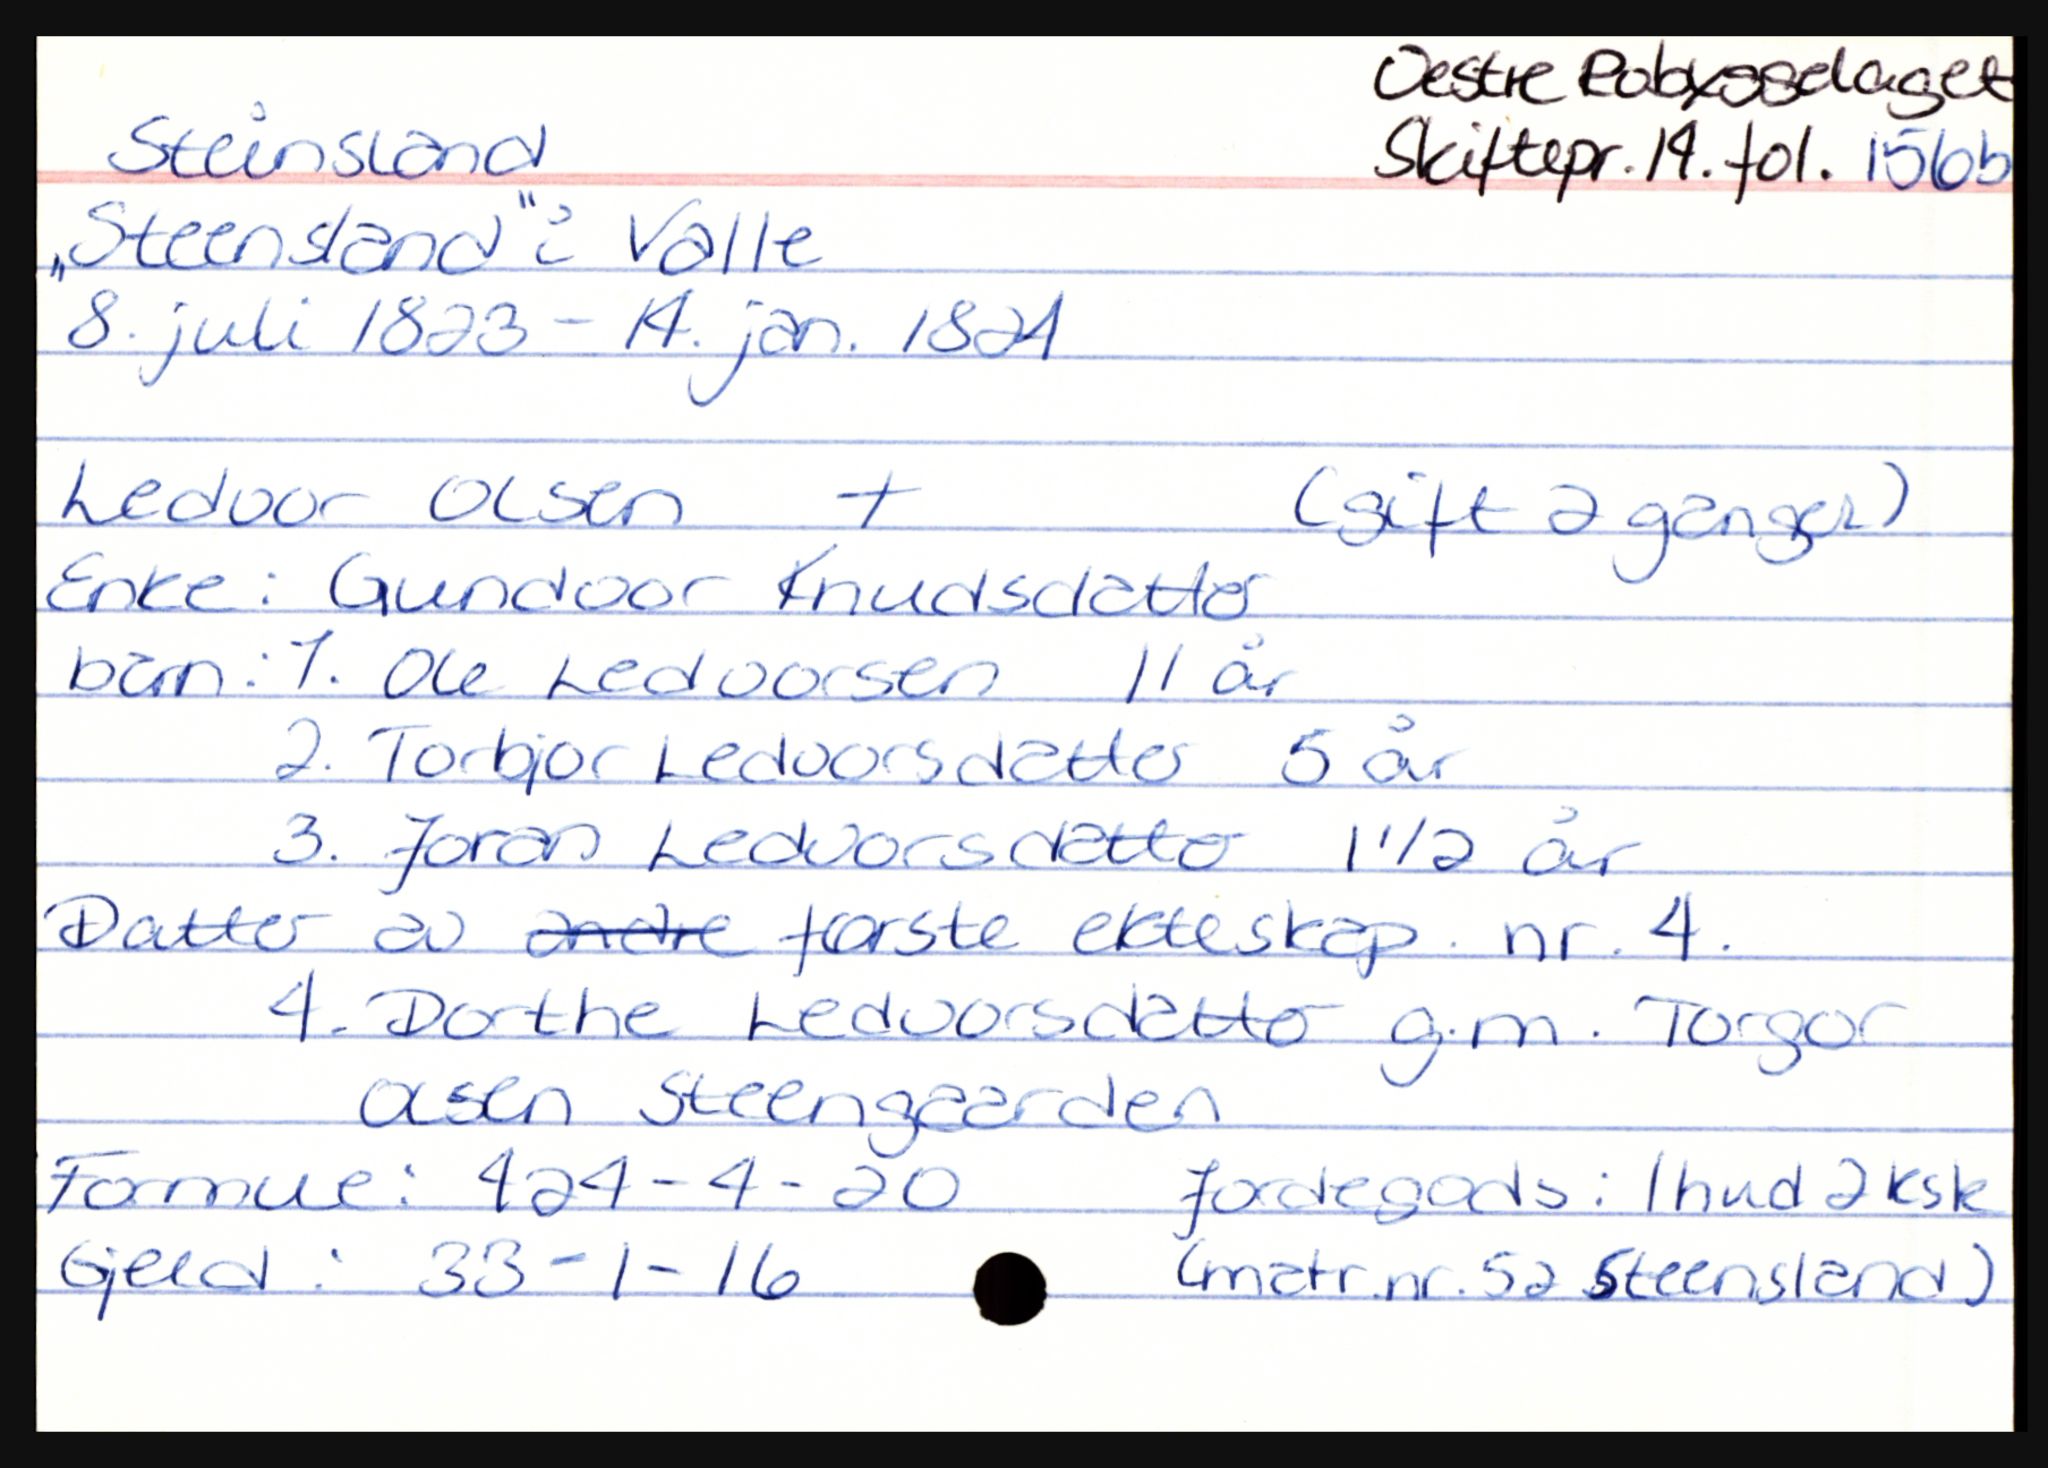 Vestre Robyggelaget
Steinsland Skiftepr. 14. fol. 156b
„Steensland" i Valle
8. juli 1823 - 14. jan. 1824
Ledvor Olsen + (gift 2 ganger)
Enke: Gundvor Knudsdatter
barn: 1. Ole Ledvorsen 11 år
2. Torbjor Ledvorsdatter 5 år
3. Joran Ledvorsdatter 1 1/2 år
Datter av andre første ekteskap. nr. 4.
4. Dorthe Ledvorsdatter g.m. Torgor
Olsen Steengaarden
Formue: 424-4-20 Jordegods: 1 hud 2 ksk
Gjeld: 33-1-16 (matr.nr. 52 Steensland)